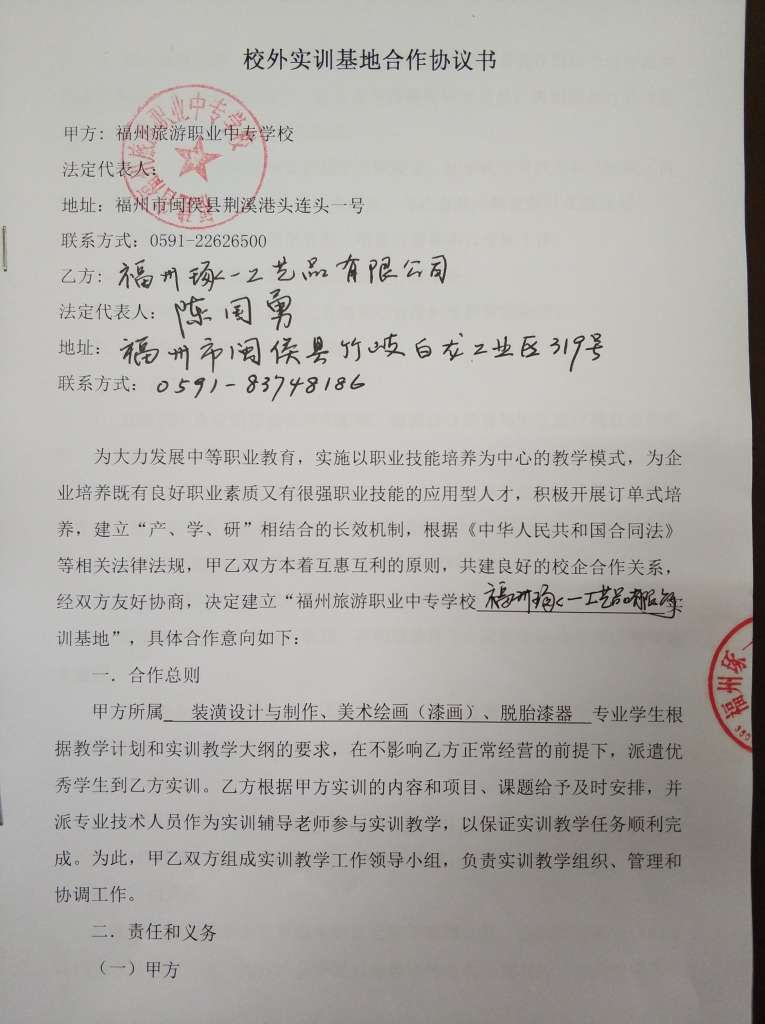 校外实训基地合作协议书
甲方：福州旅游职业中专学校
法定代表人：
地址：福州市闽侯县荆溪港头连头一号
联系方式：0591-22626500
乙方：福州琢一工艺品有限公司
法定代表人：陈国勇
地址：福州市闽侯县竹岐白龙工业区319号
联系方式：0591-83748186
为大力发展中等职业教育，实施以职业技能培养为中心的教学模式，为企
业培养既有良好职业素质又有很强职业技能的应用型人才，积极开展订单式培
养，建立“产、学、研”相结合的长效机制，根据《中华人民共和国合同法》
等相关法律法规，甲乙双方本着互惠互利的原则，共建良好的校企合作关系，
经双方友好协商，决定建立“福州旅游职业中专学校福州琢一工艺品有限公司实
训基地”，具体合作意向如下：
一．合作总则
甲方所属 装潢设计与制作、美术绘画（漆画）、脱胎漆器 专业学生根
据教学计划和实训教学大纲的要求，在不影响乙方正常经营的前提下，派遣优
秀学生到乙方实训。乙方根据甲方实训的内容和项目、课题给予及时安排，并
派专业技术人员作为实训辅导老师参与实训教学，以保证实训教学任务顺利完
成。为此，甲乙双方组成实训教学工作领导小组，负责实训教学组织、管理和
协调工作。
二．责任和义务
（一）甲方
福州琢
350